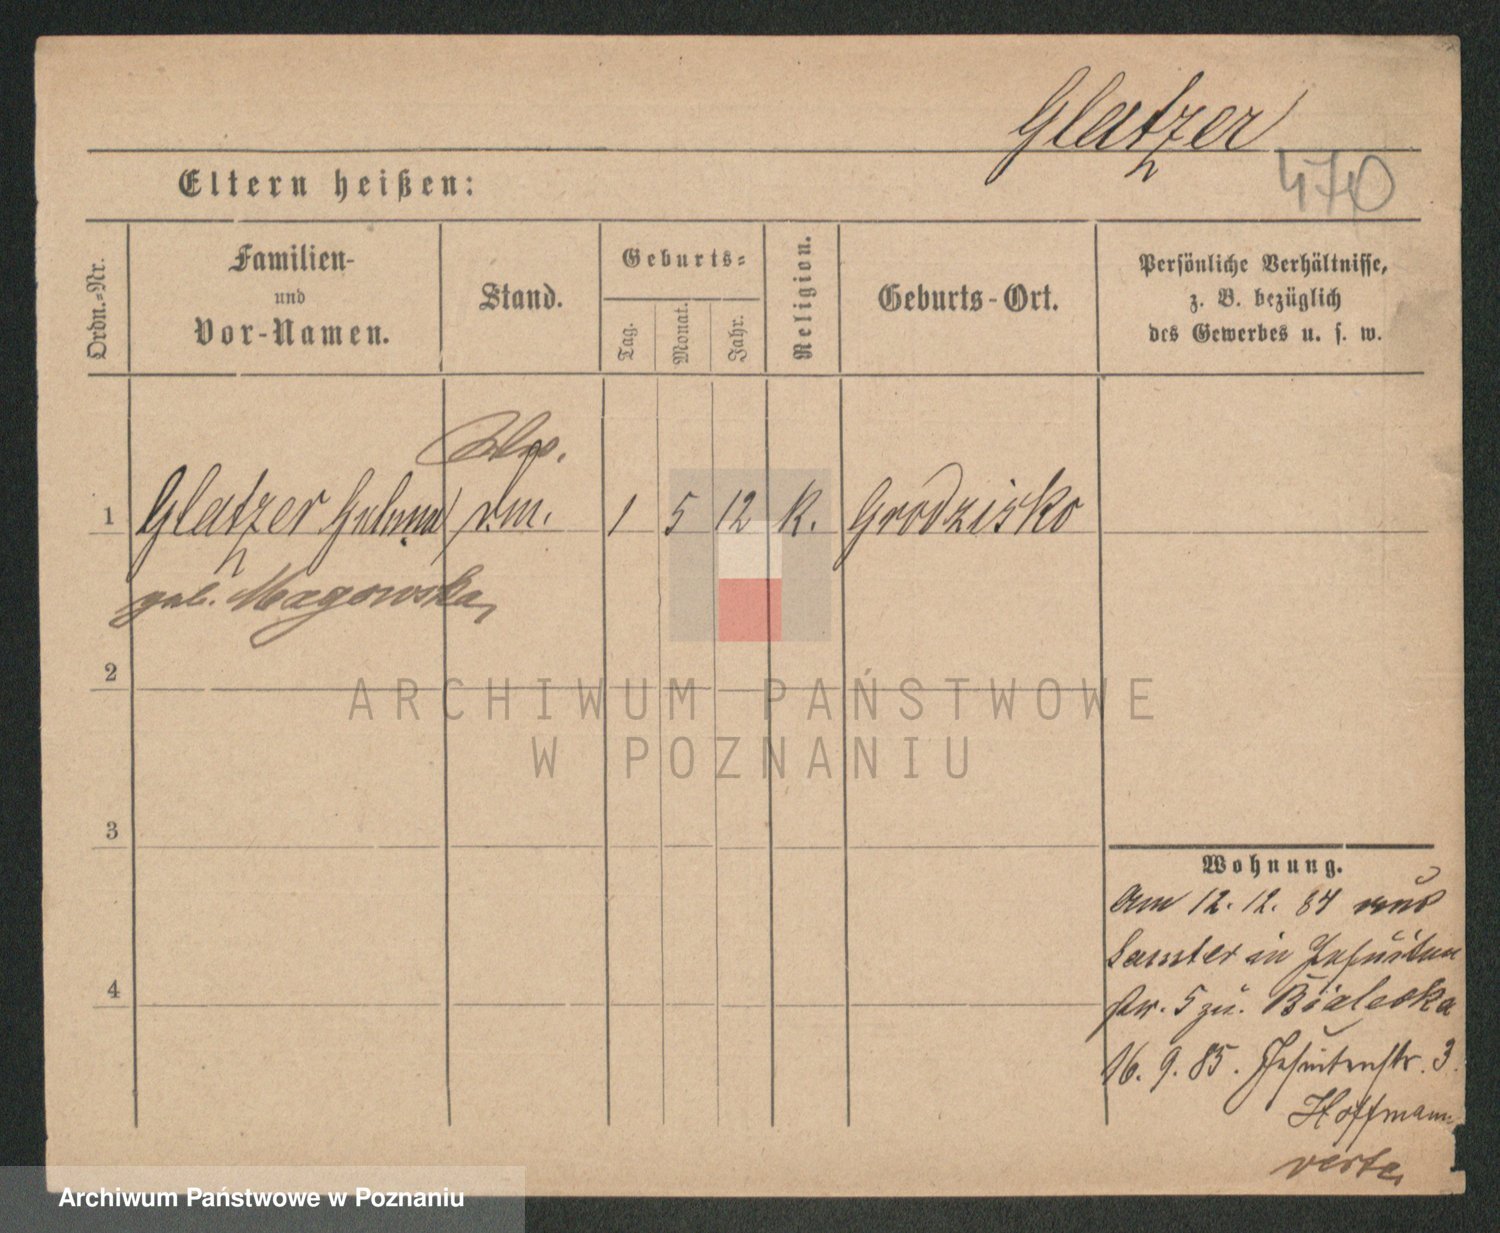 Glatzer
470
Eltern heißen:
Ordn.-Nr.
Familien-
und
Vor-Namen.
Stand.
Geburts-
Tag.
Monat.
Jahr.
Religion.
Geburts-Ort.
Persönliche Verhältnisse,
z. B. bezüglich
des Gewerbes u. s. w.
1 Glatzer 1 5 12 K. Grodzisko
geb. Magowska
2
ARCHIWUM PAŃSTWOWE
W POZNANIU
3
Wohnung.
Am 12. 12. 84 aus
Samter in Jesuiten
str. 5 zu. Bialecka
4
16. 9. 85. Jesuitenstr. 3.
Hoffmann
verte
Archiwum Państwowe w Poznaniu